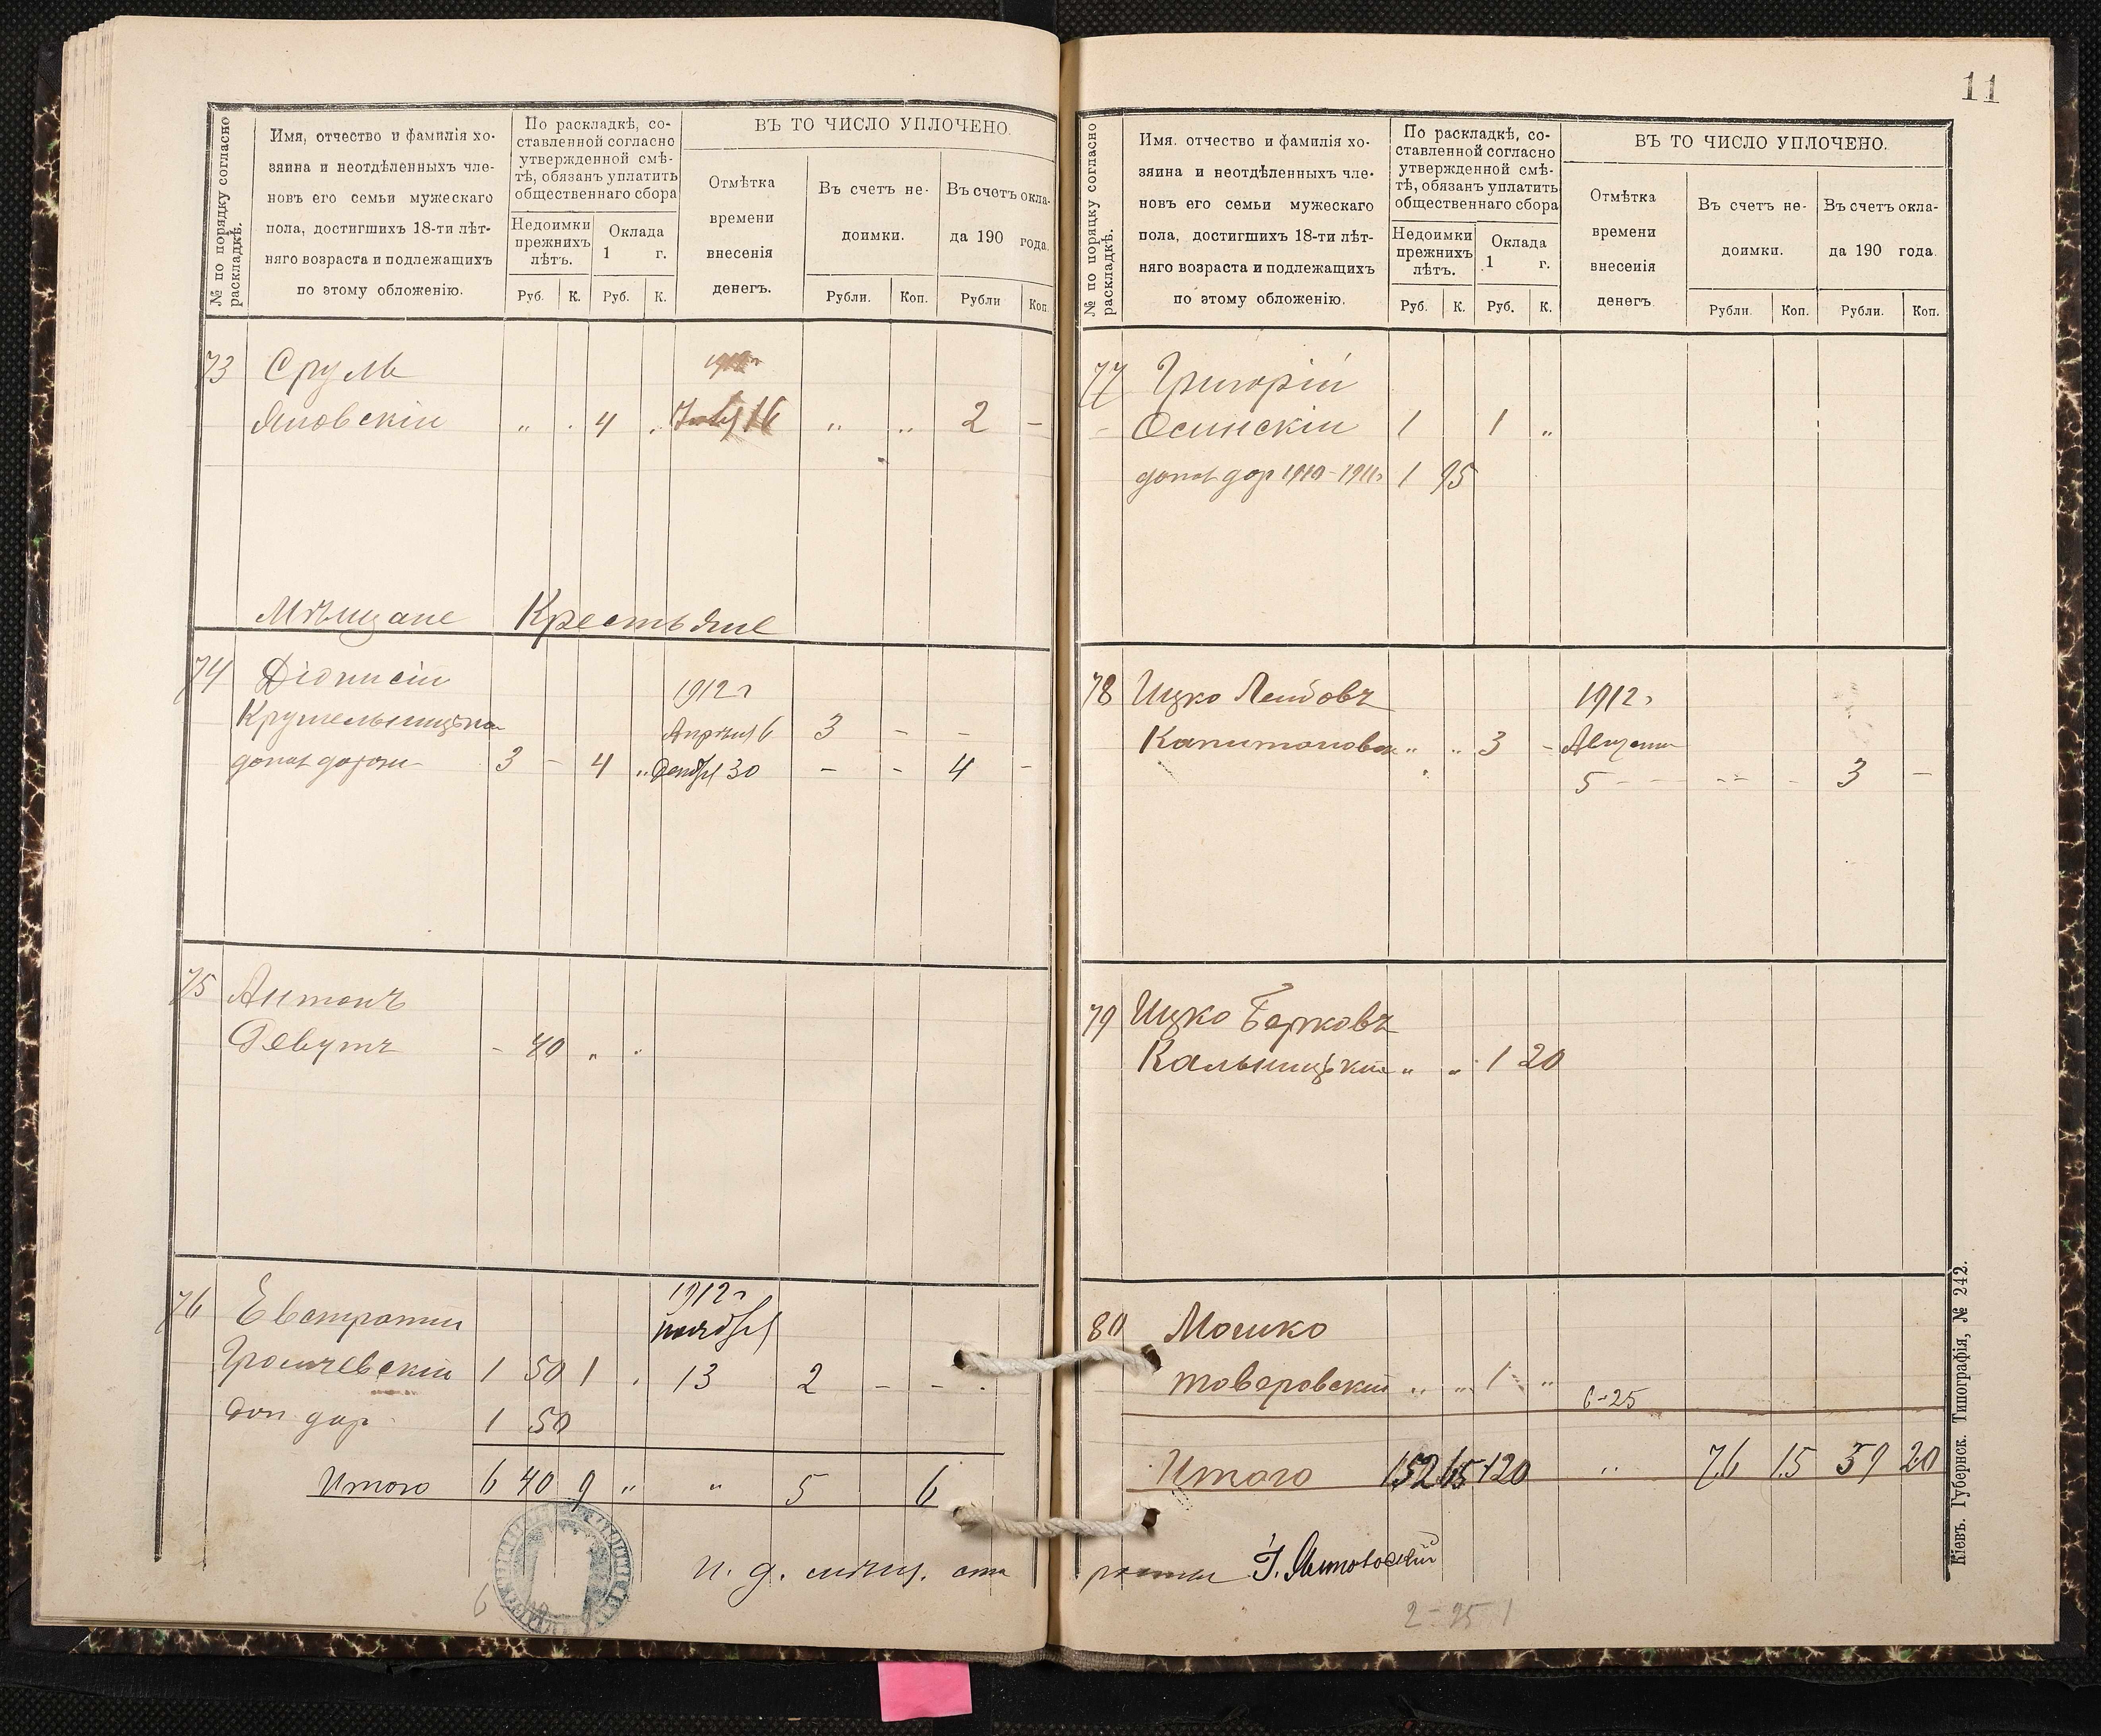 11
№ по порядку согласно раскладкѣ.
Имя, отчество и фамилія хо-
зяина и неотдѣленныхъ чле-
новъ его семьи мужескаго
пола, достигшихъ 18-ти лѣт-
няго возраста и подлежащихъ
по этому обложенію.
По раскладкѣ, со-
ставленной согласно
утвержденной смѣ-
тѣ, обязанъ уплатить
общественнаго сбора
Недоимки
прежнихъ
лѣтъ.
Оклада
1 г.
Руб. К. Руб. К.
ВЪ ТО ЧИСЛО УПЛОЧЕНО.
Отмѣтка
времени
внесенія
денегъ.
Въ счетъ не-
доимки.
Въ счетъ окла-
да 190 года.
Рубли. Коп. Рубли Коп.
73 Сруль
Яновскій " . 4 . 16 " " 2 —
Мѣщане Крестьяне
74 Діонисій 1912 г
Крушельницкій Апрѣля 6 3 - -
3 - 4 " 30 - - 4 -
75 Антонъ
- 40 " "
76 Евстратій 1912 г
ноября
1 50 1 . 13 2 - -
доп дор 1 50
Итого 6 40 9 " " 5 6
и. д. мѣщ. ста
№ по порядку согласно раскладкѣ.
Имя. отчество и фамилія хо-
зяина и неотдѣленныхъ чле-
новъ его семьи мужескаго
пола, достигшихъ 18-ти лѣт-
няго возраста и подлежащихъ
по этому обложенію.
По раскладкѣ, со-
ставленной согласно
утвержденной смѣ-
тѣ, обязанъ уплатить
общественнаго сбора
Недоимки
прежнихъ
лѣтъ.
Оклада
1 г.
Руб. К. Руб. К.
ВЪ ТО ЧИСЛО УПЛОЧЕНО.
Отмѣтка
времени
внесенія
денегъ.
Въ счетъ не-
доимки.
Въ счетъ окла-
да 190 года.
Рубли. Коп. Рубли. Коп.
77 Григорій
Осинскій 1 1 "
дор 1910-1911г 1 95
78 Ицко Лейбовъ 1912 г
" " 3 - Августа
5 - - - 3 -
79 Ицко Берковъ
Кальницкій " " 1 20
80 Мошко
Товаровскій " " 1 "
6-25
Итого 152 65 120 " 76 15 59 20
росты
2-95 1
Кіевъ. Губернск. Типографія, № 242.